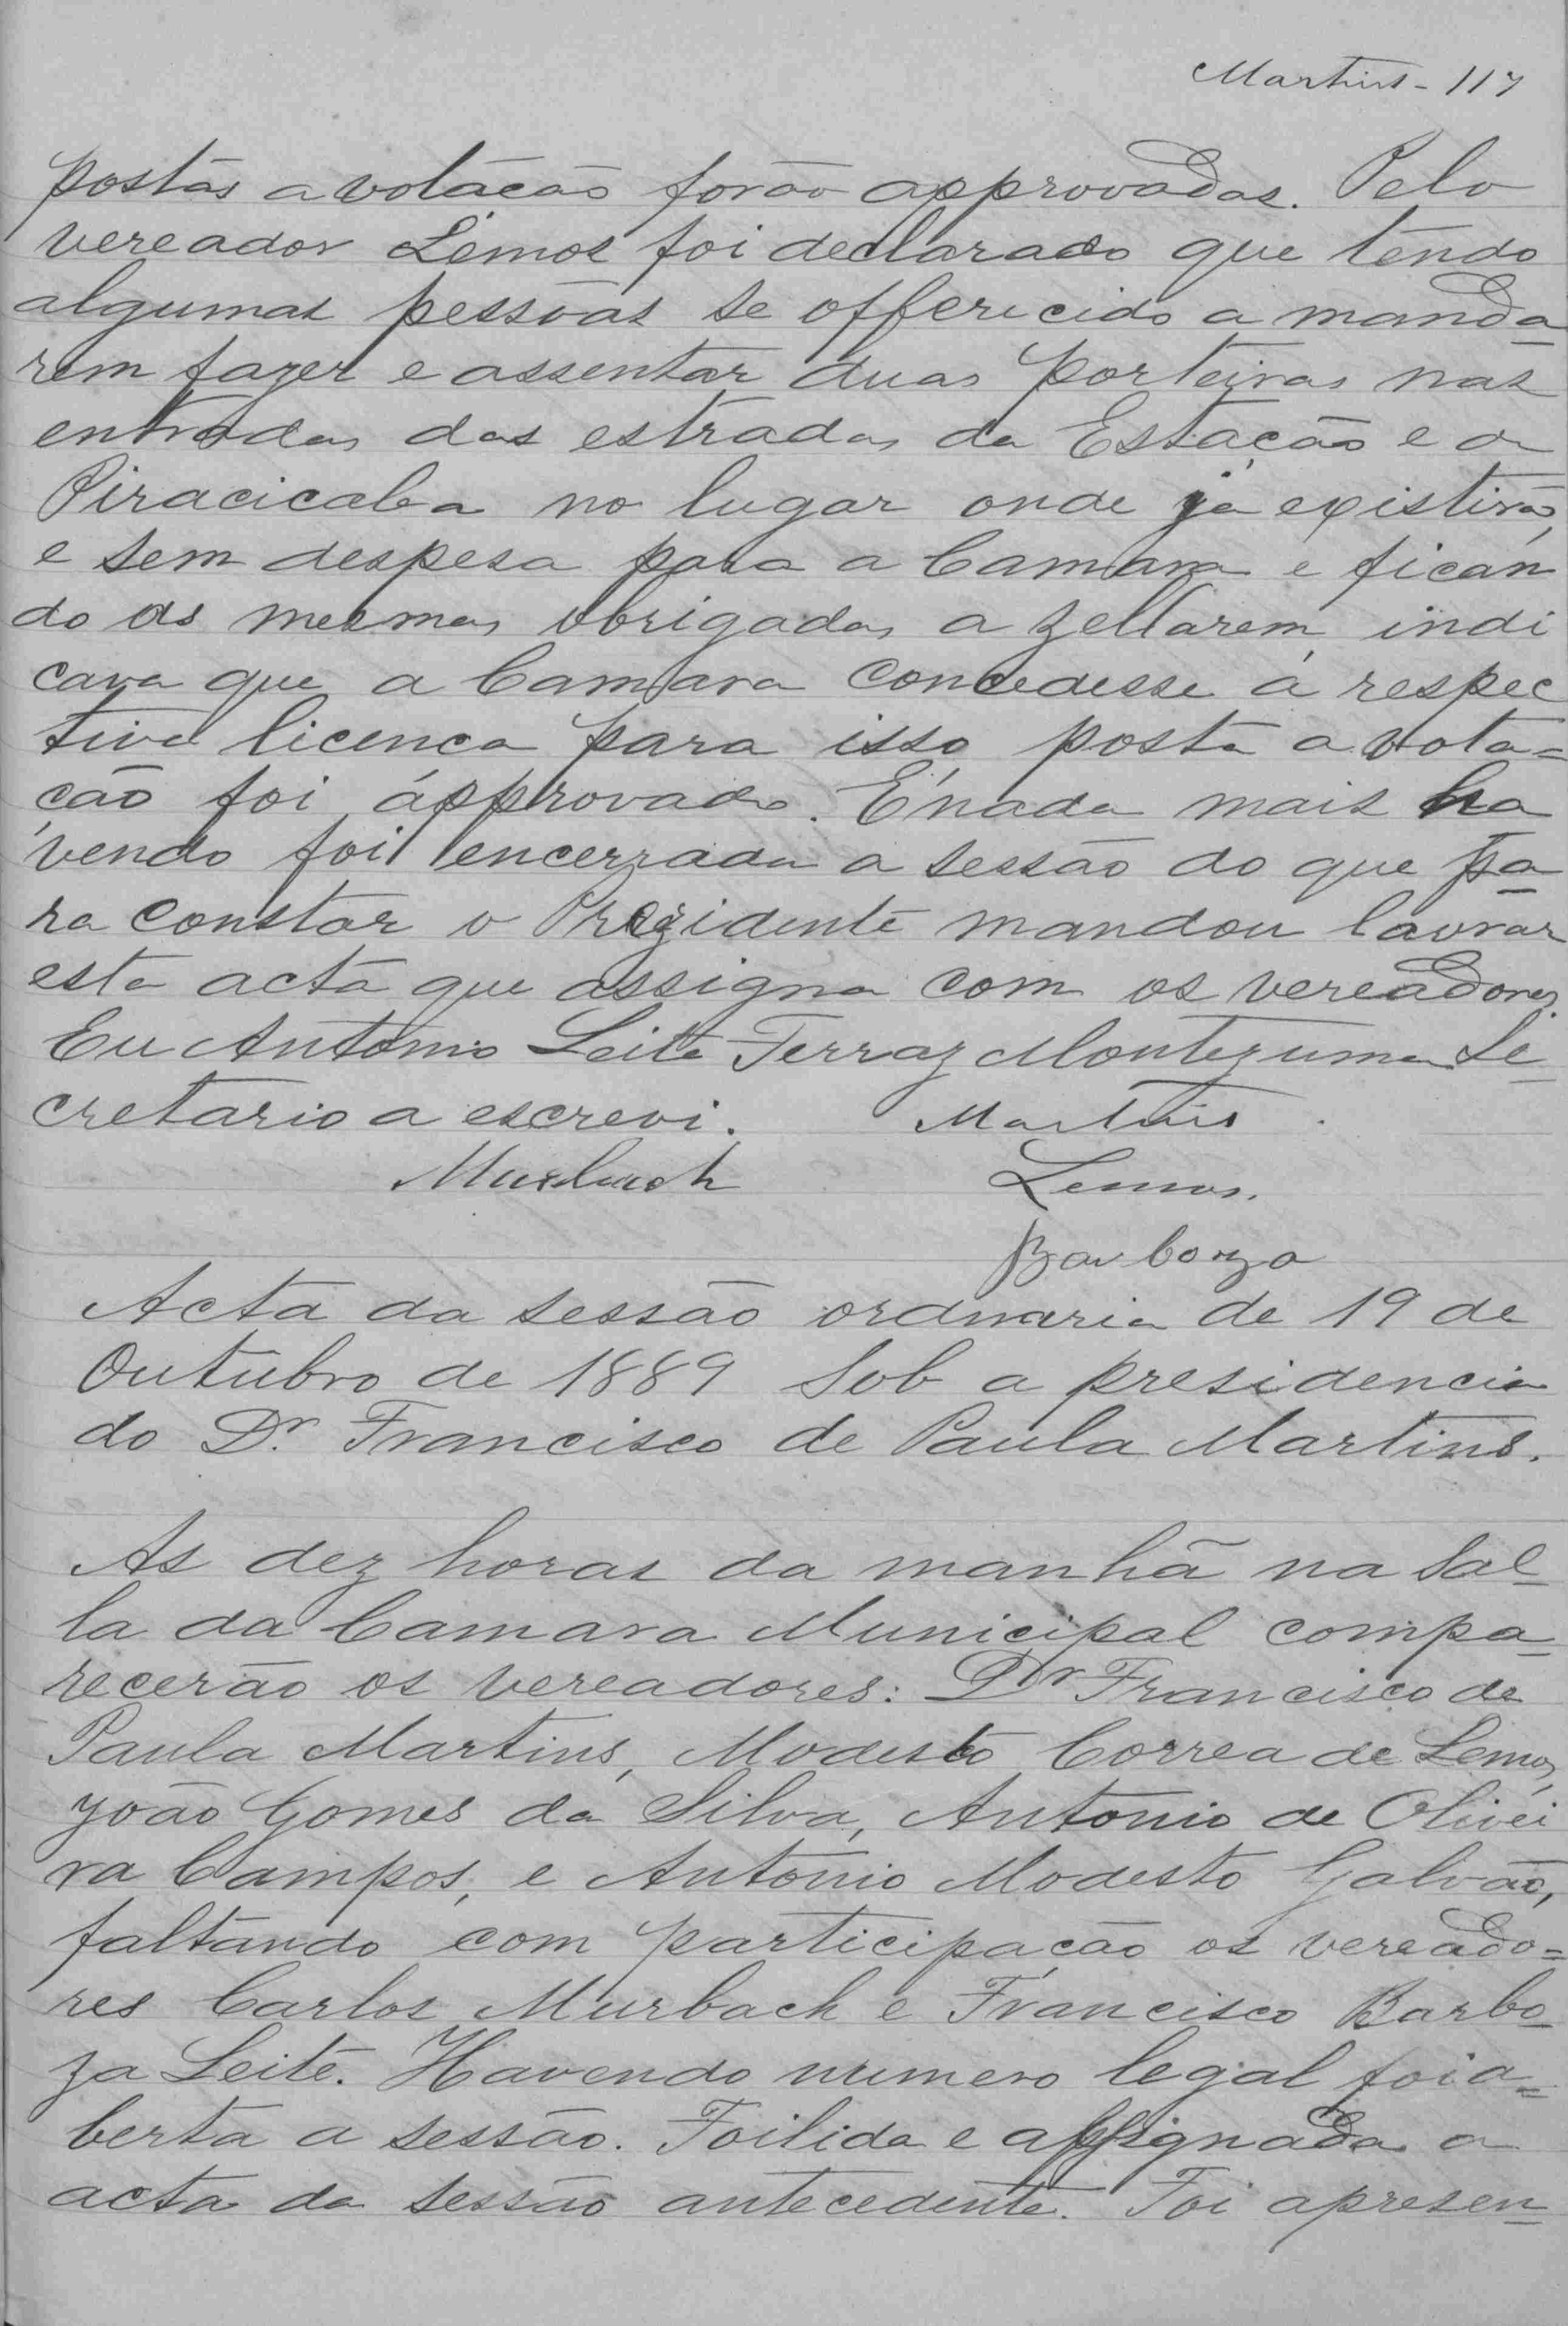 Martins - 117
postas a votação forão approvadas. Pelo
vereador Lemos foi declarado que tendo
algumas pessoas se offericido a manda
rem fazer e assentar duas porteiras nas
entradas das estradas da Estação e a
Piracicaba no lugar onde já existirão,
e sem despesa para a Camara e fican
do as mesmas obrigadas a zellarem, indi
cava que a Camara concedesse a respec
tiva licença para isso, posta a vota=
ção foi approvado. E nada mais ha
vendo foi encerrada a sessão do que pa
ra constar o Prezidente mandou lavrar
esta acta que assigna com os vereadores.
Eu Antonio Leite Ferraz Montezuma Se
cretario a escrevi. Martins
Murbach Lemos.
Barboza
Acta da sessão ordinaria de 19 de
Outubro de 1889 Sob a presidencia
do Dr. Francisco de Paula Martins.
As dez horas da manhã na Sal
la da Camara Municipal compa
recerão os vereadores: Dr Francisco de
Paula Martins, Modesto Correa de Lemos,
João Gomes da Silva, Antonio de Olivei
ra Campos, e Antonio Modesto Galvão,
faltando com participação os vereado=
res Carlos Murbach e Francisco Barbo
za Leite. Havendo numero legal foi a=
berta a sessão. Foi lida e assignada a
acta da sessão antecedente. Foi apresen